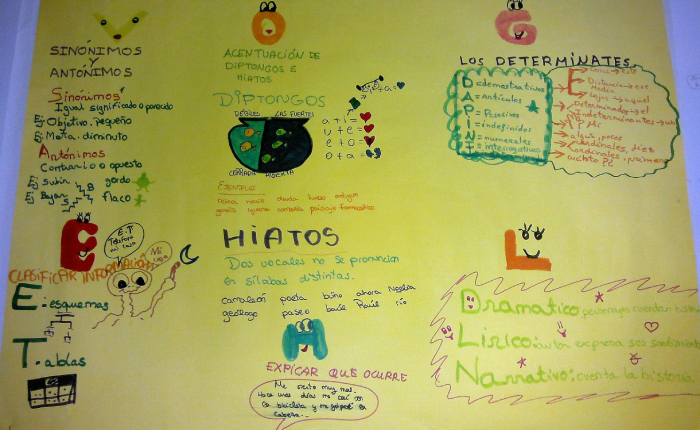 SINÓNIMOS
Y
ANTÓNIMOS
Sinónimos
Igual significado o parecido
Ej: Objetivo, pequeño
Ej: Meta, diminuto
Antónimos
Contrario o opuesto
Ej: Subir gordo
Ej: Bajar flaco
O
ACENTUACIÓN DE
DIPTONGOS E
HIATOS
DIPTONGOS
DÉBILES LAS FUERTES
CERRADA ABIERTA
a + i =
u + e =
e + o =
o + a =
EJEMPLOS
reina novio deuda antiguo
paisaje
G
LOS DETERMINATES
D = demostrativos
A = Artículos
P = Posesivos
I = indefinidos
N = numerales
T = interrogativos
Cerca → este
Distancia → ese
Media
Lejos → aquel
Determinado → el
indeterminantes → un
Mi
algún, pocos
cardinales, diez
ordinales, primero
E
CLASIFICAR INFORMACIÓN
E.T
Teléfono
mi casa
Mi
casa
E. esquemas
T. ablas
HIATOS
Dos vocales no se pronuncian
en sílabas distintas.
camaleón poeta búho ahora
geólogo paseo baúl Raúl río
H
EXPICAR QUE OCURRE
Me siento muy mal.
Hace unos días me caí con
la bicicleta y me golpeé la
cabeza...
L
Dramatico: personajes cuentan
Lirico: autor expresa sus sentimientos
Narrativo: cuenta la historia